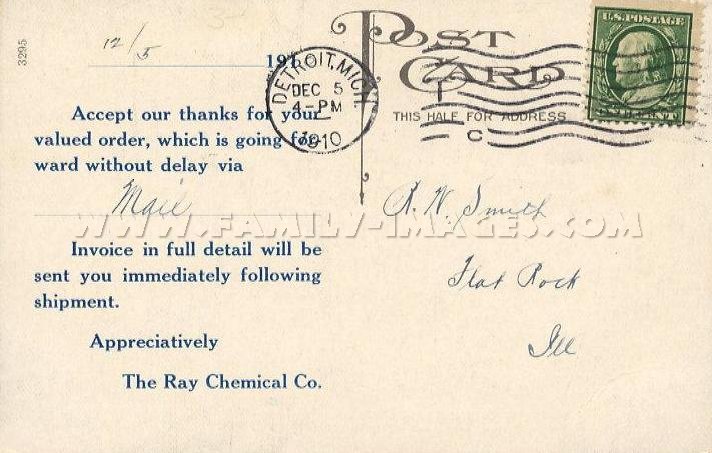 3295
12/5 191
POST CARD
THIS HALF FOR ADDRESS
U.S. POSTAGE
DETROIT, MICH.
DEC 5
4-PM
1910
C
Accept our thanks for your
valued order, which is going for-
ward without delay via
Mail
Invoice in full detail will be
sent you immediately following
shipment.
Appreciatively
The Ray Chemical Co.
R. W. Smith
Flat Rock
Ill
WWW.FAMILY-IMAGES.COM